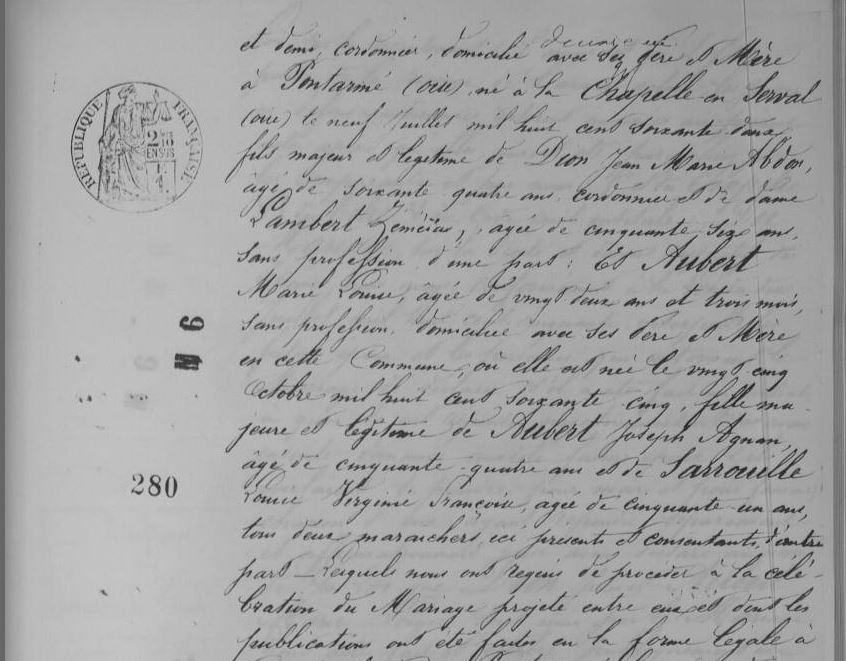 et demi, cordonnier, domicilié avec ses père et Mère
à Pontarmé (oise), né à la Chapelle en Serval
(oise) le neuf Juillet mil huit cent soixante deux
fils majeur et légitime de Dion Jean Marie Abdon,
âgé de soixante quatre ans cordonnier et de dame
Lambert, âgée de cinquante six ans,
sans profession d'une part: Et Aubert
Marie Louise, âgée de vingt deux ans et trois mois,
sans profession, domiciliée avec ses père et Mère
en cette Commune, où elle est née le vingt cinq
Octobre mil huit cent soixante cinq, fille ma-
jeure et légitime de Aubert Joseph Agnan,
âgé de cinquante quatre ans et de Sarrouille
Louise Verginie Françoise, âgée de cinquante un ans,
tous deux maraichers, ici présents et consentants, d'autre
part — Lesquels nous ont requis de procéder à la célé-
bration du Mariage projeté entre eux et dont les
publications ont été faites en la forme légale à
REPUBLIQUE FRANÇAISE
2/10
EN SUS
N 6
280